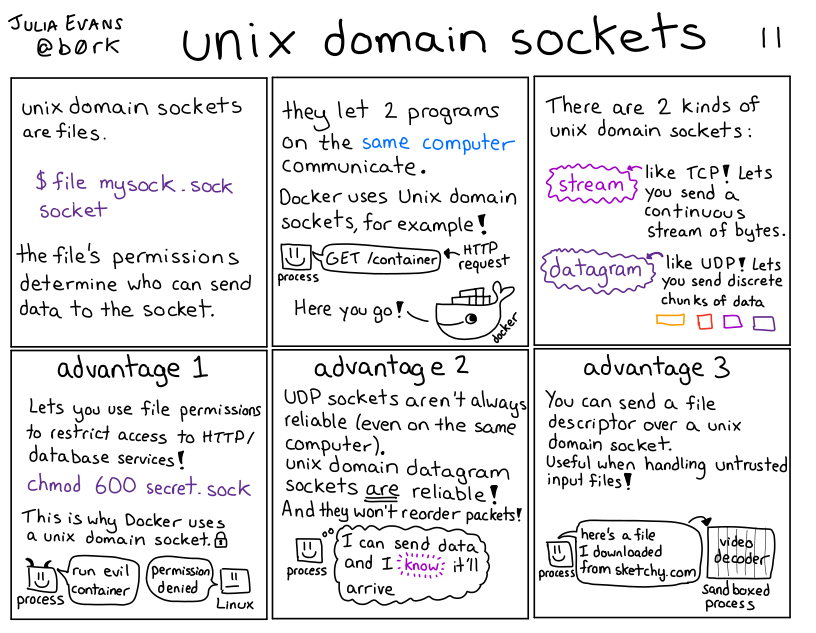 JULIA EVANS
@b0rk
unix domain sockets
11
unix domain sockets
are files.
$ file mysock.sock
socket
the file's permissions
determine who can send
data to the socket.
they let 2 programs
on the same computer
communicate.
Docker uses Unix domain
sockets, for example!
GET /container
HTTP
request
process
Here you go!
docker
There are 2 kinds of
unix domain sockets:
stream
like TCP! Lets
you send a
continuous
stream of bytes.
datagram
like UDP! Lets
you send discrete
chunks of data
advantage 1
Lets you use file permissions
to restrict access to HTTP/
database services!
chmod 600 secret.sock
This is why Docker uses
a unix domain socket.
run evil
container
process
permission
denied
Linux
advantage 2
UDP sockets aren't always
reliable (even on the same
computer).
unix domain datagram
sockets are reliable!
And they won't reorder packets!
I can send data
and I know it'll
arrive
process
advantage 3
You can send a file
descriptor over a unix
domain socket.
Useful when handling untrusted
input files!
here's a file
I downloaded
from sketchy.com
process
video
decoder
sandboxed
process